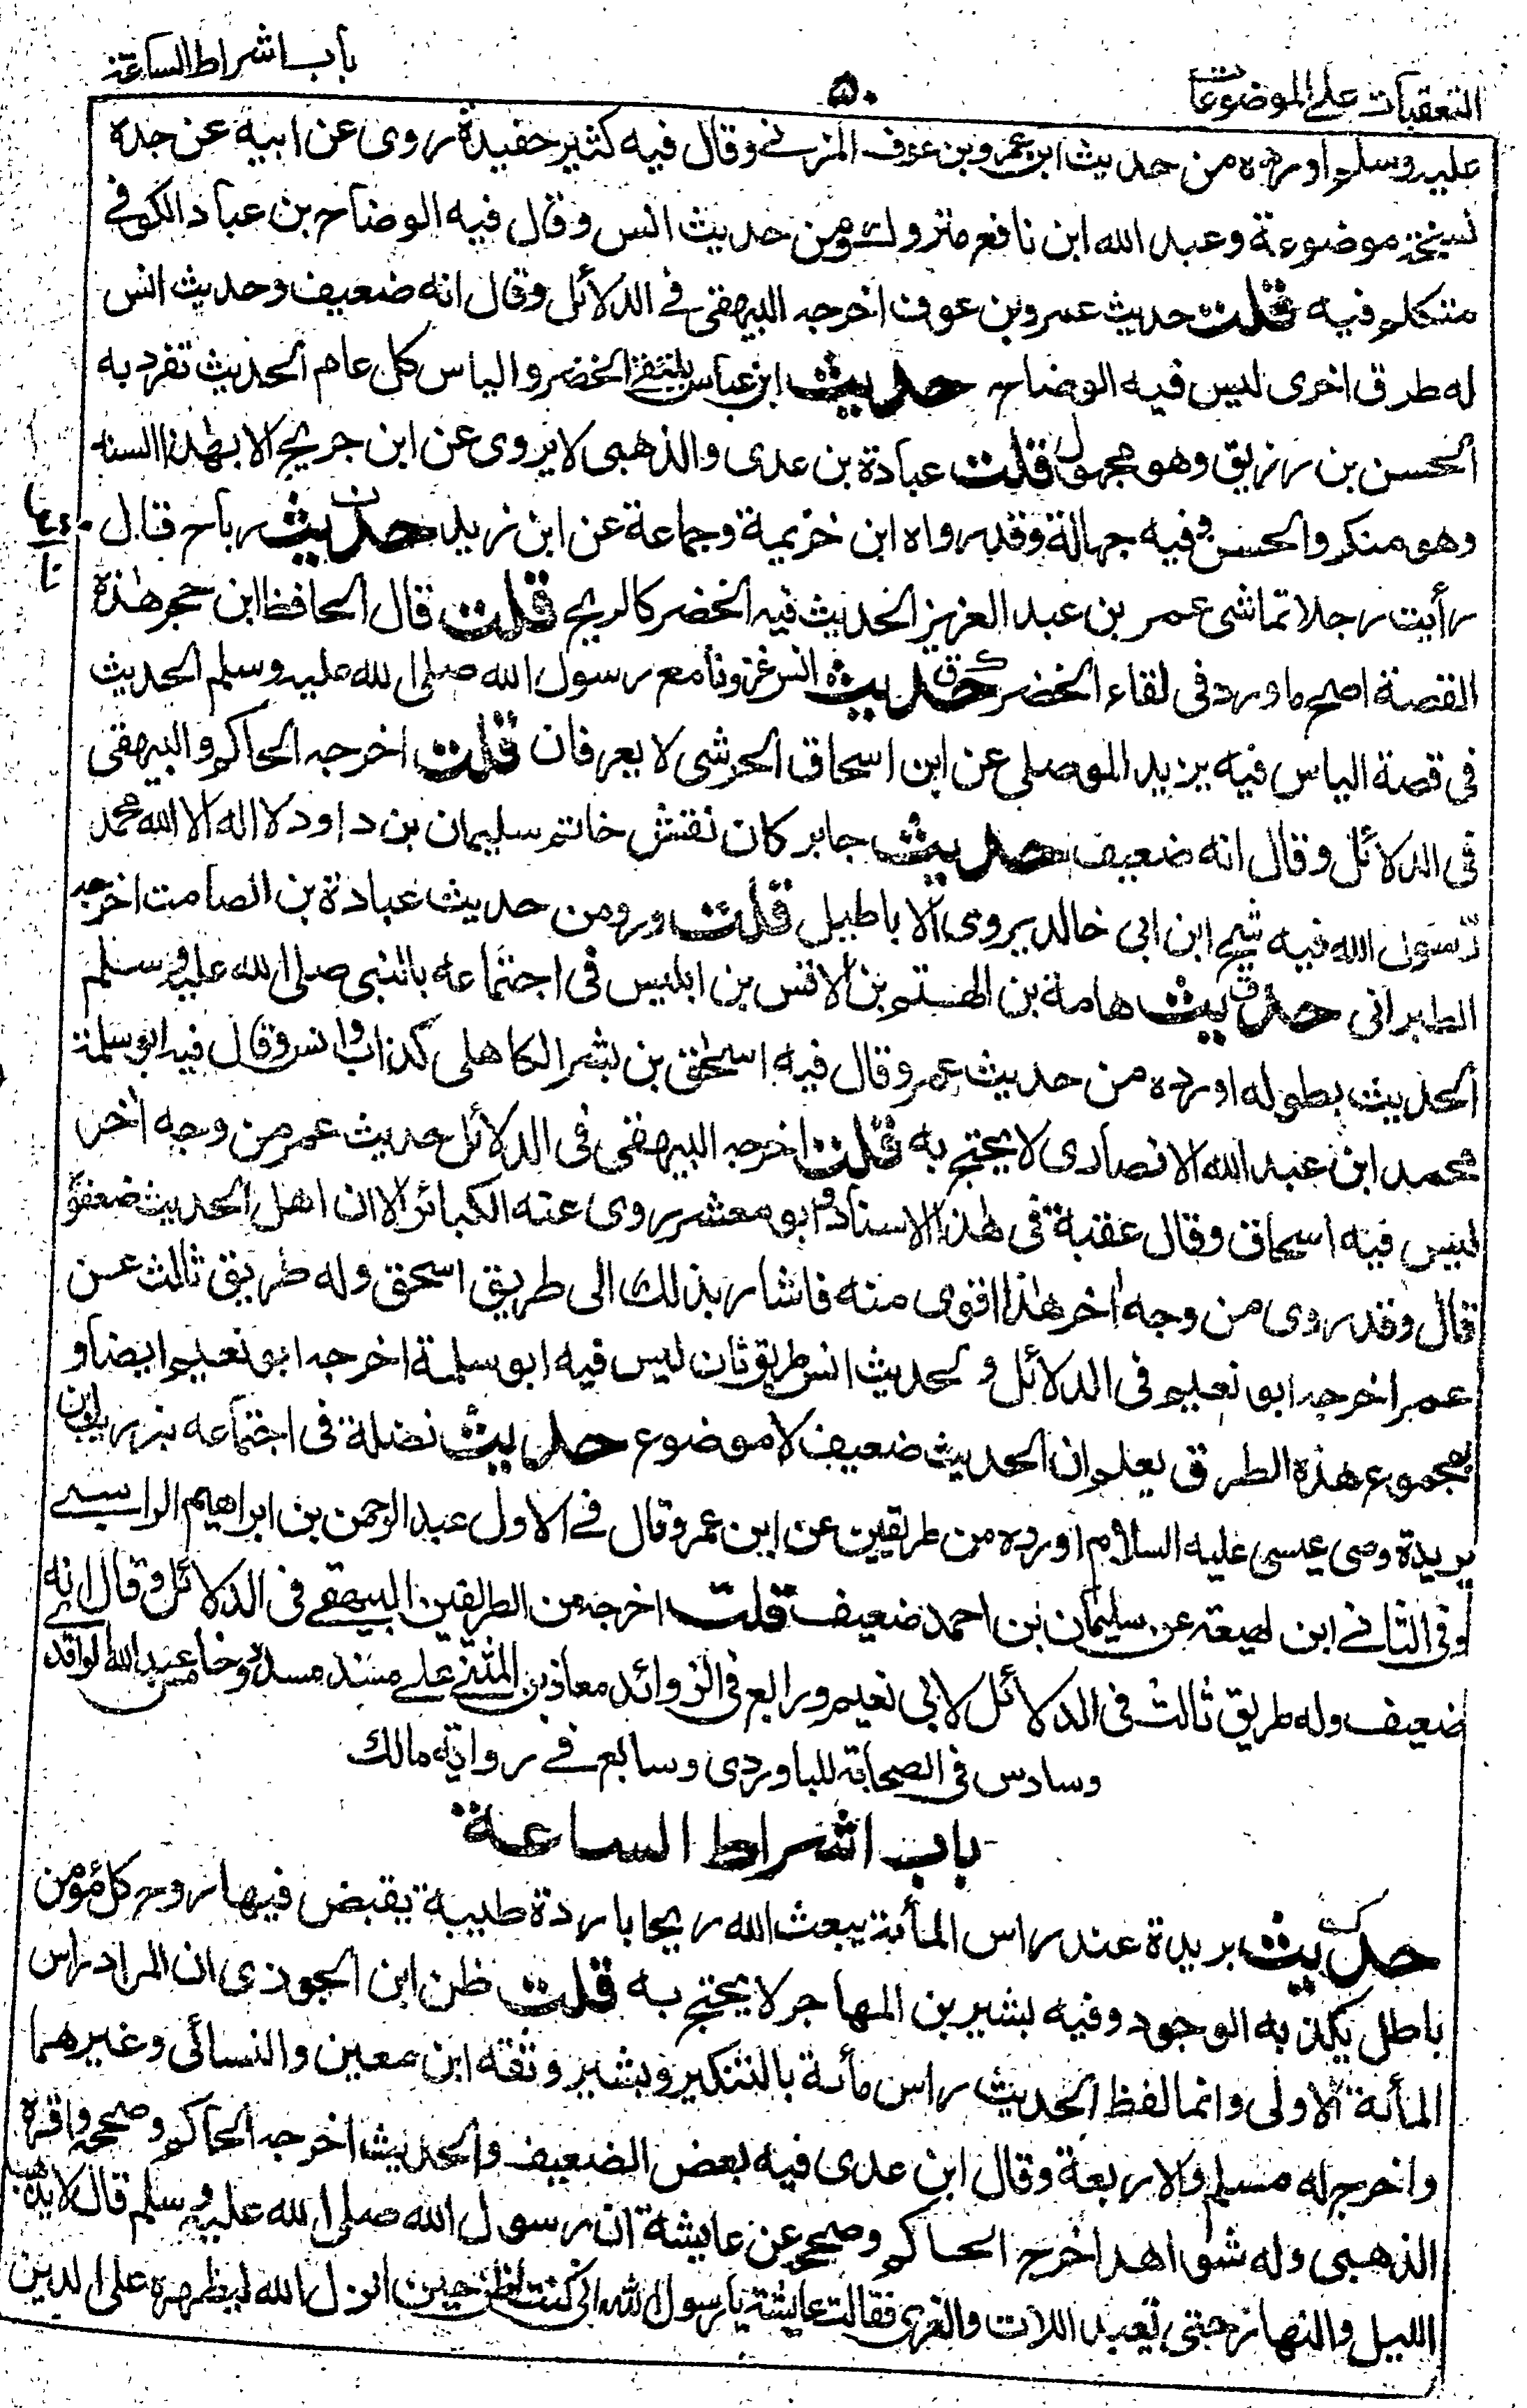 التعقبات على الموضوعات
۵۰
باب اشراط الساعة
عليه وسلم اورده من حديث ابن عمرو بن عوف المزنى وقال فيه كثير حفيدة روى عن ابيه عن جده
نسخة موضوعة وعبد الله ابن نافع متروك ومن حديث انس وقال فيه الوضاح بن عباد الكوفى
متكلم فيه قلت حديث عمرو بن عوف اخرجه البيهقى فى الدلائل وقال انه ضعيف وحديث انس
له طرق اخرى ليس فيه الوضاح حديث ابن عباس يلتقى الخضر والياس كل عام الحديث تفرد به
الحسن بن رزيق وهو مجهول قلت عبادة بن عدى والذهبى لا يروى عن ابن جريج الا بهذا السند
وهو منكر والحسن فيه جهالة وقد رواه ابن خزيمة وجماعة عن ابن زيد حديث رباح قال
رأيت رجلا تماشى عمر بن عبد العزيز الحديث فيه الخضر كالريح قلت قال الحافظ ابن حجر هذه
القصة اصح ما ورد فى لقاء الخضر حديث انس غزونا مع رسول الله صلى الله عليه وسلم الحديث
فى قصة الياس فيه يزيد الموصلى عن ابن اسحاق الحرشى لا يعرفان قلت اخرجه الحاكم والبيهقى
فى الدلائل وقال انه ضعيف حديث جابر كان نقش خاتم سليمان بن داود لا اله الا الله محمد
رسول الله فيه شيخ ابن ابى خالد يروى الاباطيل قلت ورو ومن حديث عبادة بن الصامت اخرجه
الطبرانى حديث هامة بن الهيتم بن الاقس بن ابليس فى اجتماعه بالنبى صلى الله عليه وسلم
الحديث بطوله اورده من حديث عمر وقال فيه اسحق بن بشر الكاهلى كذاب وانس وقال فيه ابو سلمة
محمد ابن عبد الله الانصارى لا يحتج به قلت اخرجه البيهقى فى الدلائل حديث عمر من وجه اخر
ليس فيه اسحاق وقال عقبة فى هذا الاسناد وابو معشر روى عنه الكبائر الا ان اهل الحديث ضعفوه
قال وقد روى من وجه اخر هذا اقوى منه فاشار بذلك الى طريق اسحق وله طريق ثالث عن
عمر اخرجه ابو نعيم فى الدلائل ولحديث انس طريق ثان ليس فيه ابو سلمة اخرجه ابو نعيم ايضا و
بمجموع هذه الطرق يعلم ان الحديث ضعيف لا موضوع حديث نضلة فى اجتماعه بزريب بن
بريدة وصى عيسى عليه السلام اورده من طريقين عن ابن عمر وقال فى الاول عبد الرحمن بن ابراهيم الراسبى
وفى الثانى ابن لهيعة عن سليمان بن احمد ضعيف قلت اخرجه من الطريقين البيهقى فى الدلائل وقال انه
ضعيف وله طريق ثالث فى الدلائل لابى نعيم ورابع فى الزوائد معاذ بن المثنى على مسند مسدد وخامس عبد الله الواقد
وسادس فى الصحابة للباوردى وسابع فى رواية مالك
باب اشراط الساعة
حديث بريدة عند راس المأئة يبعث الله ريحا باردة طيبة يقبض فيها روح كل مؤمن
باطل يكذبه الوجود وفيه بشير بن المهاجر لا يحتج به قلت ظن ابن الجوزى ان المراد راس
المأئة الاولى وانما لفظ الحديث راس مأئة بالتنكير وبشير وثقه ابن معين والنسائى وغيرهما
واخرج له مسلم والاربعة وقال ابن عدى فيه بعض الضعيف والحديث اخرجه الحاكم وصححه واقره
الذهبى وله شواهد اخرج الحاكم وصحح عن عايشة ان رسول الله صلى الله عليه وسلم قال لا يذهب
الليل والنهار حتى تعبد اللات والعزى فقالت عايشة يا رسول الله انى كنت لاظن حين انزل الله ليظهره على الدين